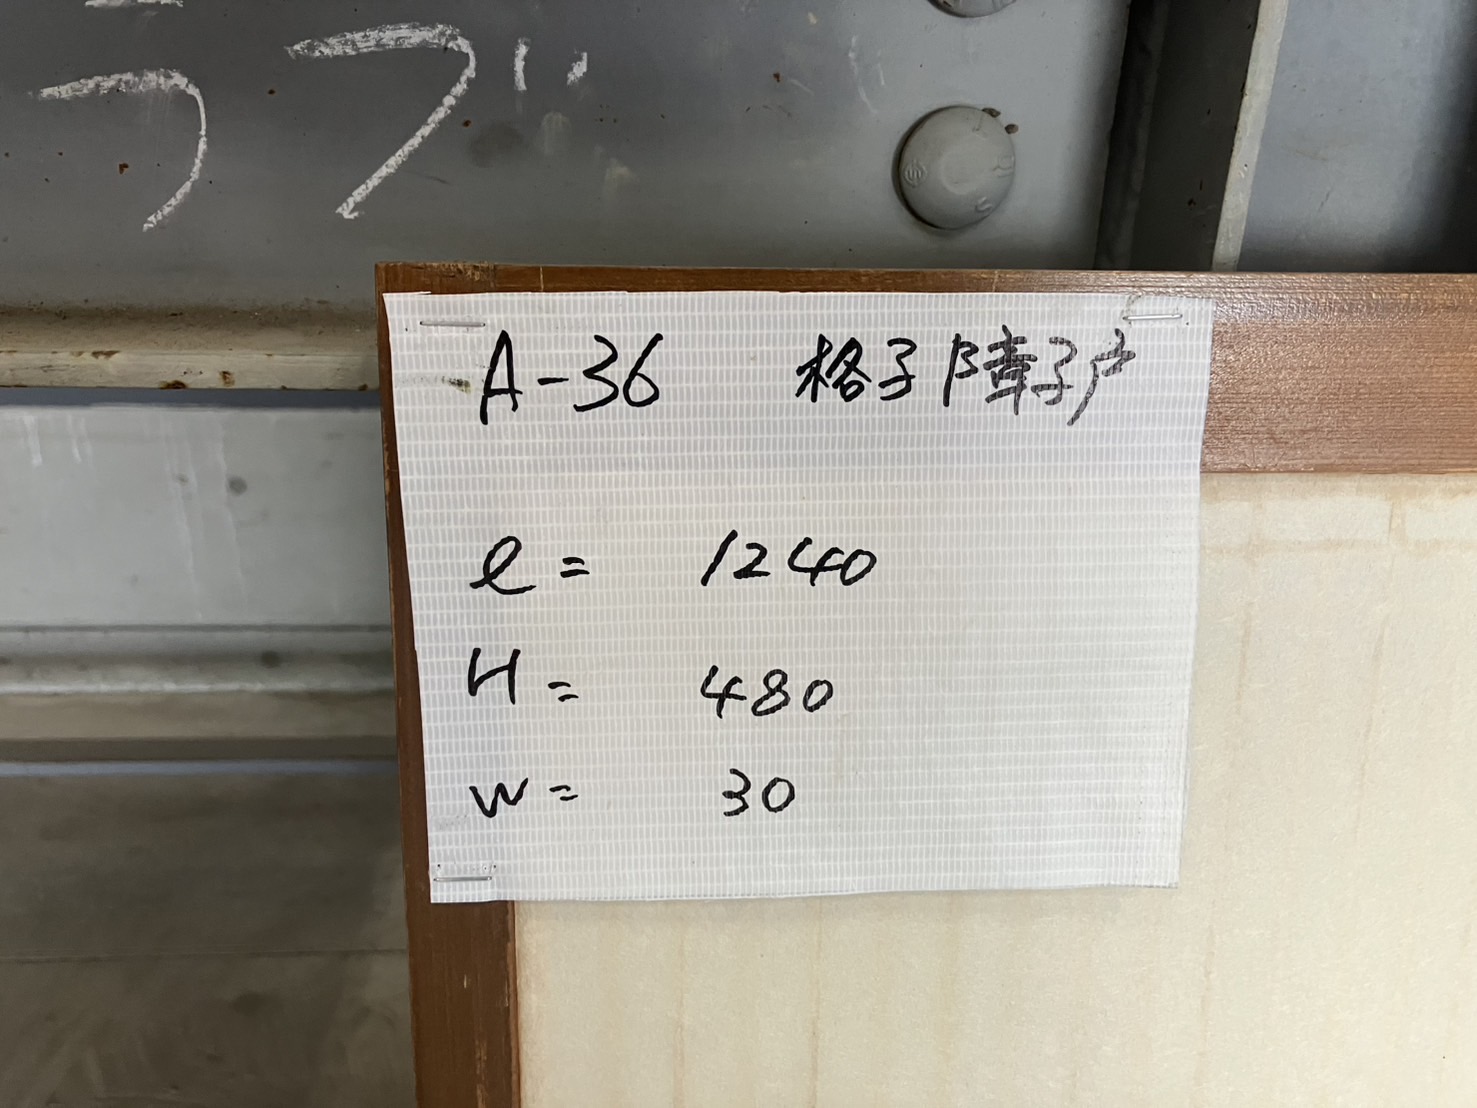 ラブ
A-36 格子障子戸
l= 1240
H= 480
W= 30